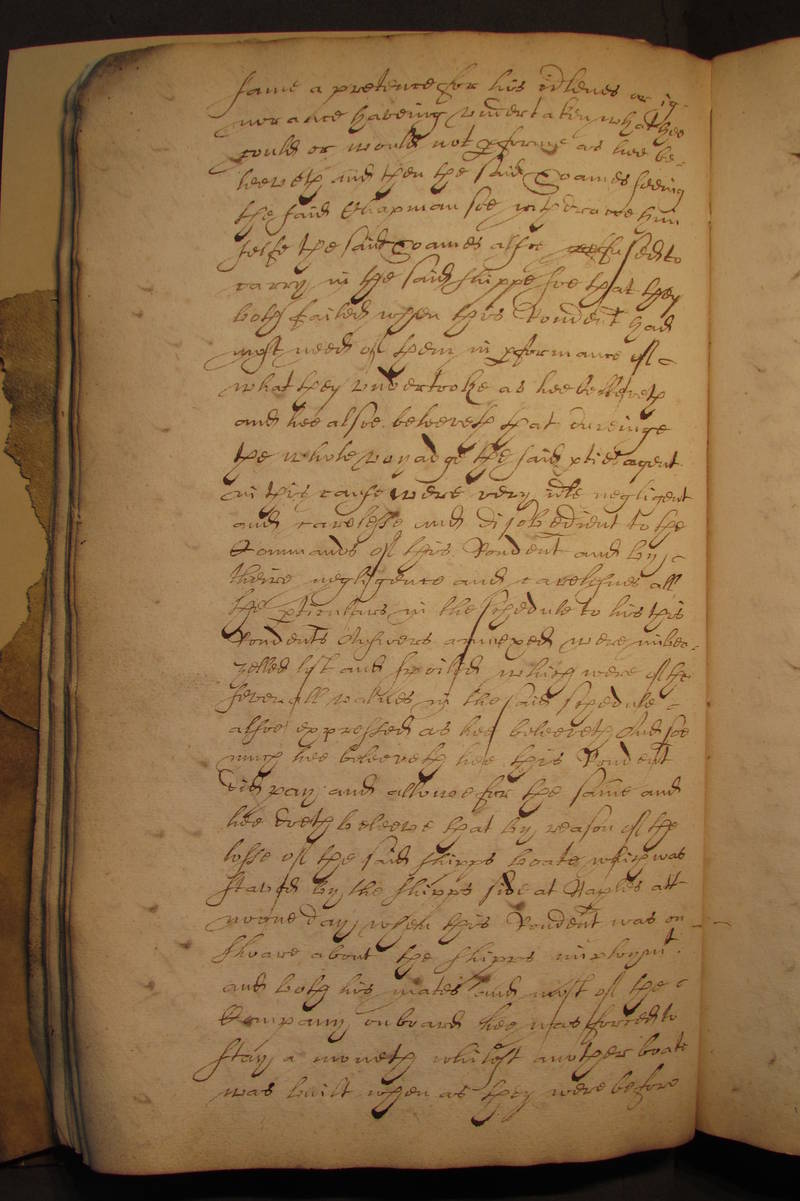 same a pretence for his idlenes or ig-
norance haveing undertaken what hee
could or would not pforme as hee be-
leeveth and then the said Soames seeing
the said Chapman soe withdrawe him
selfe the said Soames alsoe refused to
carry in the said shippe soe that they
both failed when this Rondent had
most need of them in pformance of
what they undertooke as hee beleeveth
and hee alsoe beleeveth that dureinge
the whole voyadge the said pties agent
in this cause were very idle negligent
and carelesse and disobedient to the
Commands of this Rondent and by
theire negligence and carelesnes all
the pticulars in the schedule to his this
Rondents Answers annexed were imbea-
zelled lost and spoiled which were of the
severall values in the said schedule
alsoe expressed as hee beleeveth And soe
much hee beleeveth hee this Rondent
did pay and allowe for the same and
hee doeth beleeve that by reason of the
losse of the said shipps boate which was
staved by the shipps side at Naples att
noone day when this Rondent was on
shoare about the shipps imploymt.
and both his mates and most of the
Company onboard hee was forced to
stay a moneth whilest another boate
was built when as they were before